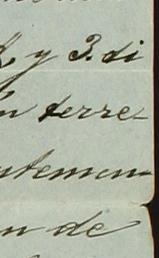 y 3. di
terre-
temen-
n de